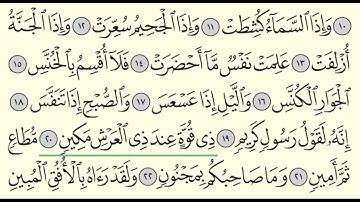 ١٠ وَإِذَا السَّمَاءُ كُشِطَتْ ١١ وَإِذَا الْجَحِيمُ سُعِّرَتْ ١٢ وَإِذَا الْجَنَّةُ
أُزْلِفَتْ ١٣ عَلِمَتْ نَفْسٌ مَّا أَحْضَرَتْ ١٤ فَلَا أُقْسِمُ بِالْخُنَّسِ ١٥
الْجَوَارِ الْكُنَّسِ ١٦ وَاللَّيْلِ إِذَا عَسْعَسَ ١٧ وَالصُّبْحِ إِذَا تَنَفَّسَ ١٨
إِنَّهُ لَقَوْلُ رَسُولٍ كَرِيمٍ ١٩ ذِي قُوَّةٍ عِندَ ذِي الْعَرْشِ مَكِينٍ ٢٠ مُّطَاعٍ
ثَمَّ أَمِينٍ ٢١ وَمَا صَاحِبُكُم بِمَجْنُونٍ ٢٢ وَلَقَدْ رَآهُ بِالْأُفُقِ الْمُبِينِ